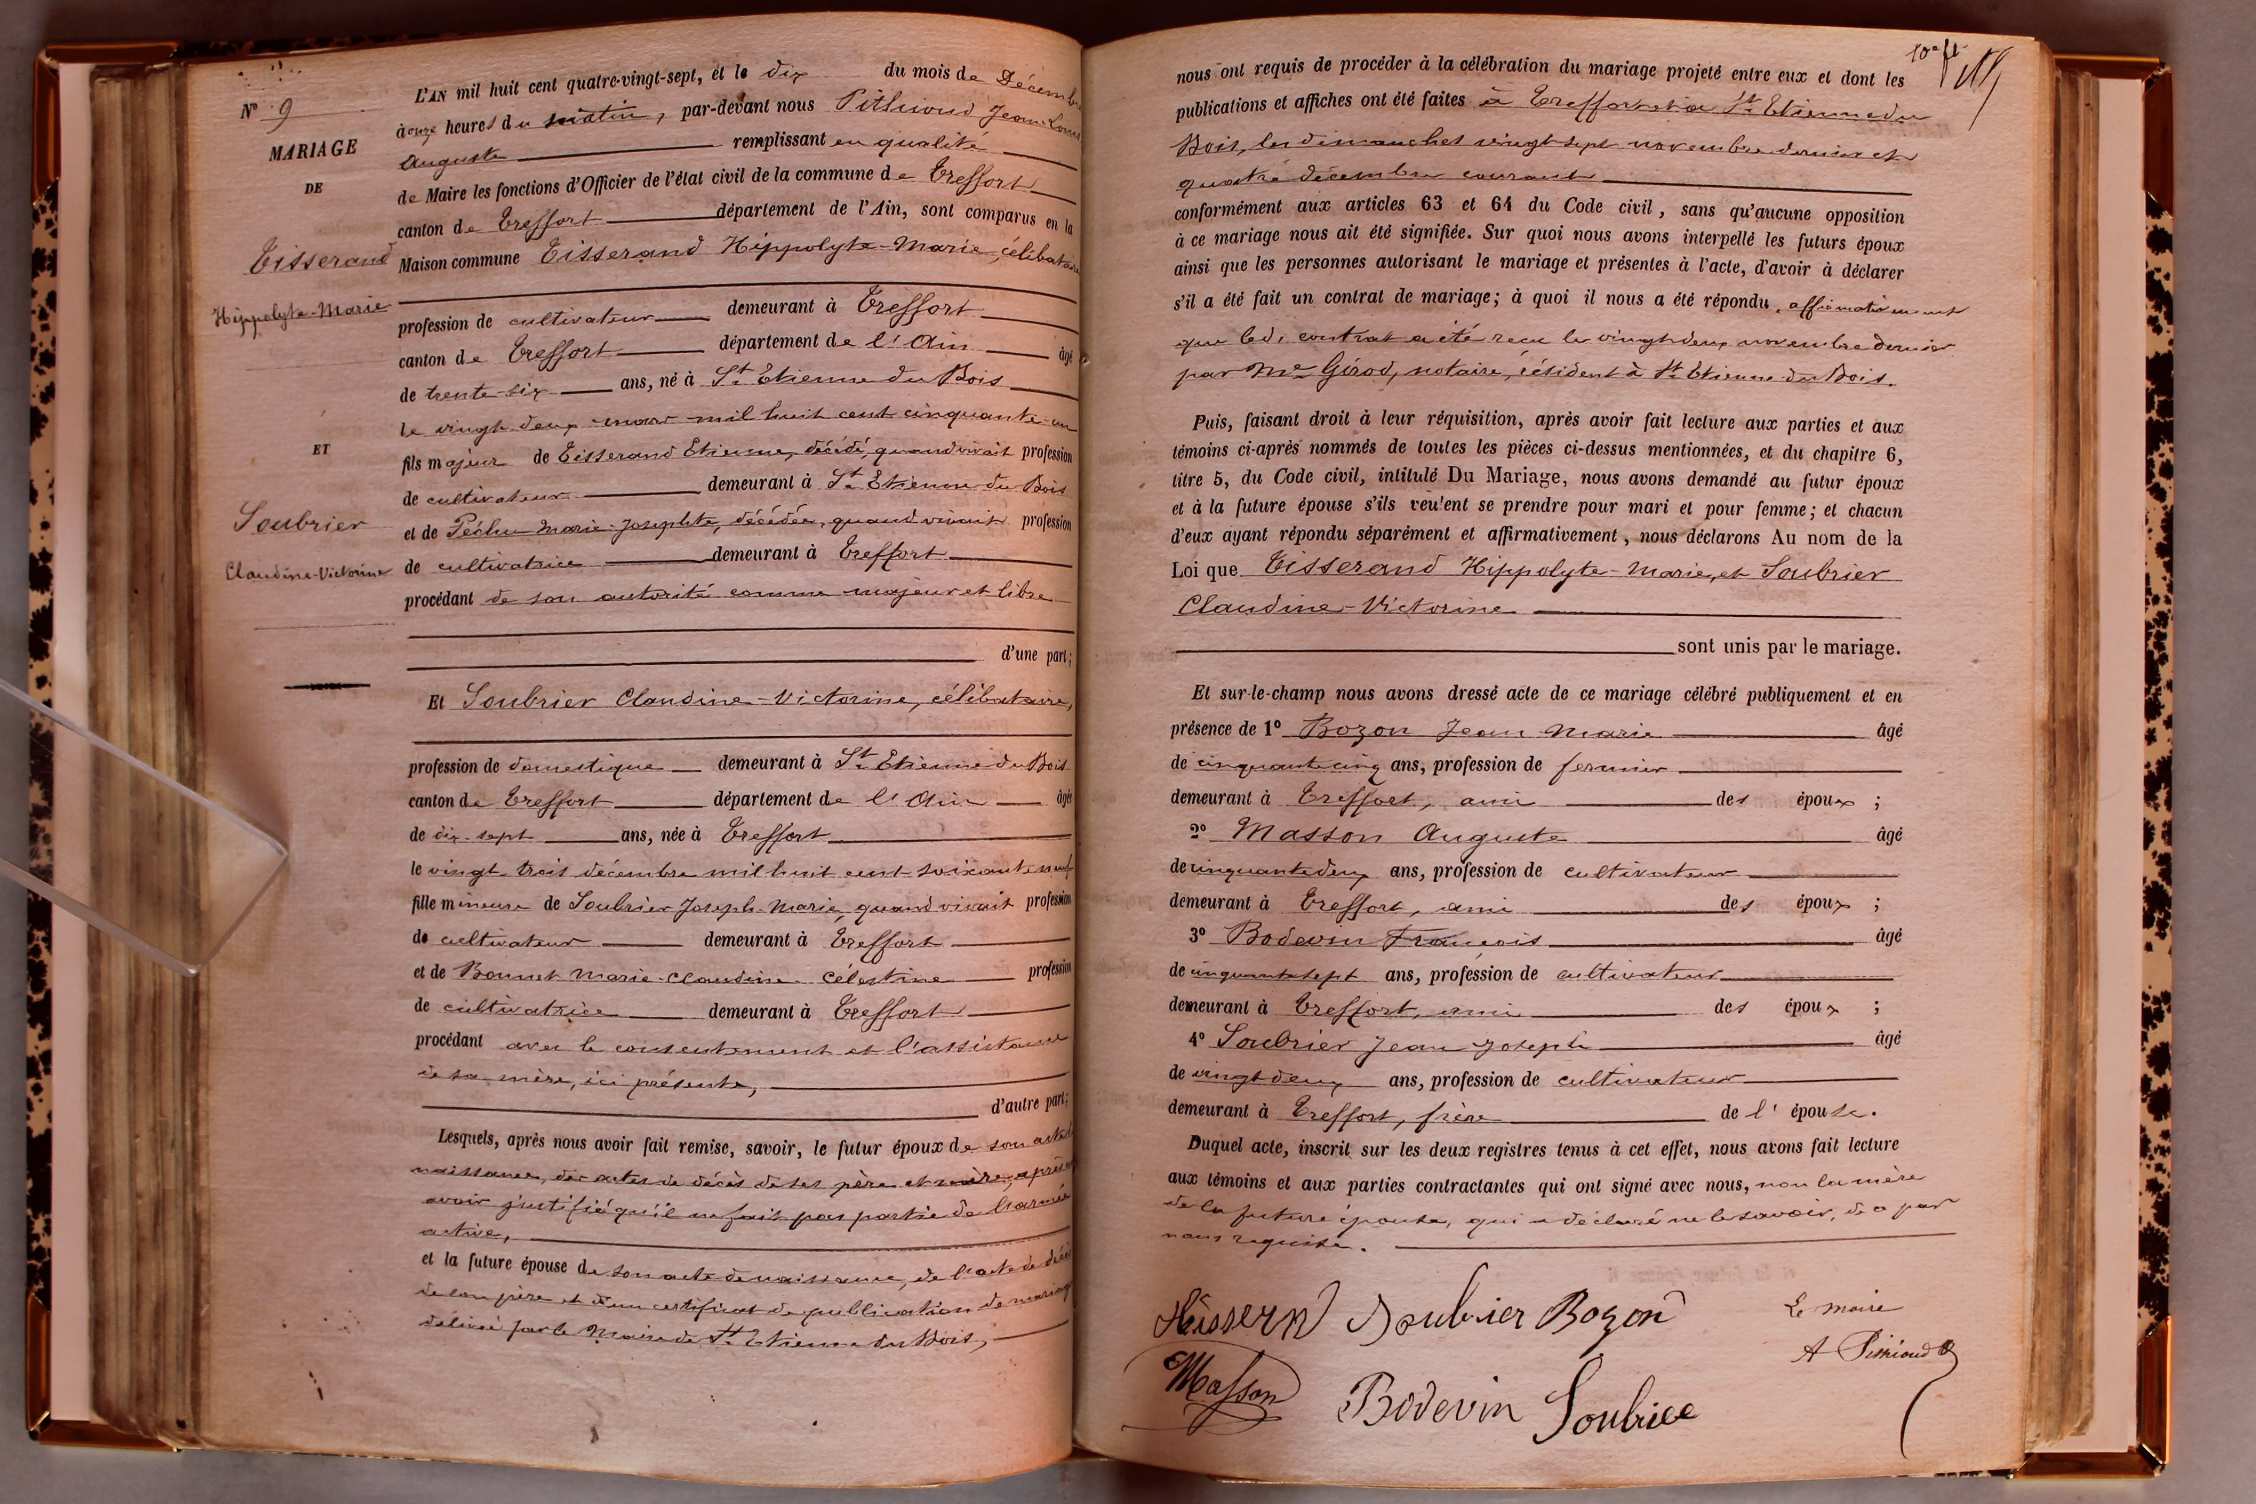 L'AN mil huit cent quatre-vingt-sept, et le dix du mois de Décembre
N° 9
à onze heures du matin, par-devant nous Pithioud Jean-Louis
Auguste remplissant en qualité
MARIAGE
de Maire les fonctions d'Officier de l'état civil de la commune de Treffort
DE
canton de Treffort département de l'Ain, sont comparus en la
Tisserand
Maison commune Tisserand Hippolyte-Marie, célibataire
Hippolyte-Marie
profession de cultivateur demeurant à Treffort
canton de Treffort département de l'Ain âgé
de trente-six ans, né à St Etienne du Bois
le vingt-deux mars mil huit cent cinquante-un
ET
fils majeur de Tisserand Etienne, décédé, quand vivait profession
de cultivateur demeurant à St Etienne du Bois
Soubrier
et de Péchu Marie-Josephte, décédée, quand vivait profession
Claudine-Victorine
de cultivatrice demeurant à Treffort
procédant de son autorité comme majeur et libre
d'une part;
Et Soubrier Claudine-Victorine, célibataire,
profession de domestique demeurant à St Etienne du Bois
canton de Treffort département de l'Ain âgée
de dix-sept ans, née à Treffort
le vingt-trois décembre mil huit cent soixante neuf
fille mineure de Soubrier Joseph-Marie, quand vivait profession
de cultivateur demeurant à Treffort
et de Bonnet Marie-Claudine-Célestine profession
de cultivatrice demeurant à Treffort
procédant avec le consentement et l'assistance
de sa mère, ici présente,
d'autre part;
Lesquels, après nous avoir fait remise, savoir, le futur époux de son acte de
naissance, des actes de décès de ses père et mère, après
avoir justifié qu'il ne fait pas partie de l'armée
active,
et la future épouse de son acte de naissance, de l'acte de décès
de son père et d'un certificat de publication de mariage
délivré par le Maire de St Etienne du Bois,
10e ft
nous ont requis de procéder à la célébration du mariage projeté entre eux et dont les
publications et affiches ont été faites à Treffort et à St Etienne du
Bois, les dimanches vingt-sept novembre dernier et
quatre décembre courant
conformément aux articles 63 et 64 du Code civil, sans qu'aucune opposition
à ce mariage nous ait été signifiée. Sur quoi nous avons interpellé les futurs époux
ainsi que les personnes autorisant le mariage et présentes à l'acte, d'avoir à déclarer
s'il a été fait un contrat de mariage; à quoi il nous a été répondu, affirmativement
que led. contrat a été reçu le vingt-deux novembre dernier
par Me Girod, notaire, résident à St Etienne-du-Bois.
Puis, faisant droit à leur réquisition, après avoir fait lecture aux parties et aux
témoins ci-après nommés de toutes les pièces ci-dessus mentionnées, et du chapitre 6,
titre 5, du Code civil, intitulé Du Mariage, nous avons demandé au futur époux
et à la future épouse s'ils veulent se prendre pour mari et pour femme; et chacun
d'eux ayant répondu séparément et affirmativement, nous déclarons Au nom de la
Loi que Tisserand Hippolyte-Marie, et Soubrier
Claudine-Victorine
sont unis par le mariage.
Et sur-le-champ nous avons dressé acte de ce mariage célébré publiquement et en
présence de 1° Bozon Jean Marie âgé
de cinquante cinq ans, profession de fermier
demeurant à Treffort, ami des époux;
2° Masson Auguste âgé
de cinquante deux ans, profession de cultivateur
demeurant à Treffort, ami des époux;
3° Bodevin François âgé
de cinquante sept ans, profession de cultivateur
demeurant à Treffort, ami des époux;
4° Soubrier Jean Joseph âgé
de vingt deux ans, profession de cultivateur
demeurant à Treffort, frère de l'épouse.
Duquel acte, inscrit sur les deux registres tenus à cet effet, nous avons fait lecture
aux témoins et aux parties contractantes qui ont signé avec nous, non la mère
de la future épouse, qui a déclaré ne le savoir, de a par
nous requise.
Soubrier Bozon
Le maire
A Pithioud
Masson
Bodevin Soubrier